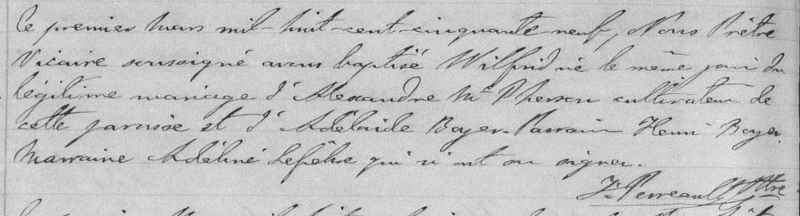 Le premier Mars mil-huit-cent-cinquante neuf, Nous Prêtre
Vicaire soussigné avons baptisé Wilfrid né le même jour du
légitime mariage d'Alexandre Mc Pherson cultivateur de
cette paroisse et d'Adélaide Boyer. Parrain Henri Boyer.
Marraine Adéline Lefebre qui n'ont su signer.
Perreault Ptre